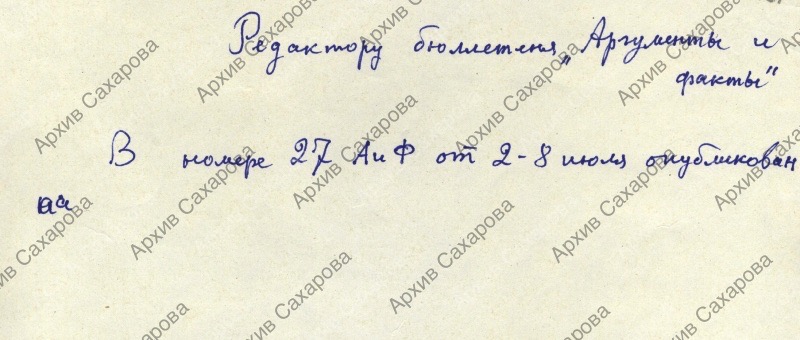 Редактору бюллетеня „Аргументы и
факты"
В номере 27 АиФ от 2-8 июля опубликован
на
Архив Сахарова
Архив Сахарова
Архив Сахарова
Архив Сахарова
Архив Сахарова
Архив Сахарова
Архив Сахарова
Архив Сахарова
Архив Сахарова
Архив Сахарова
Архив Сахарова
Архив Сахарова